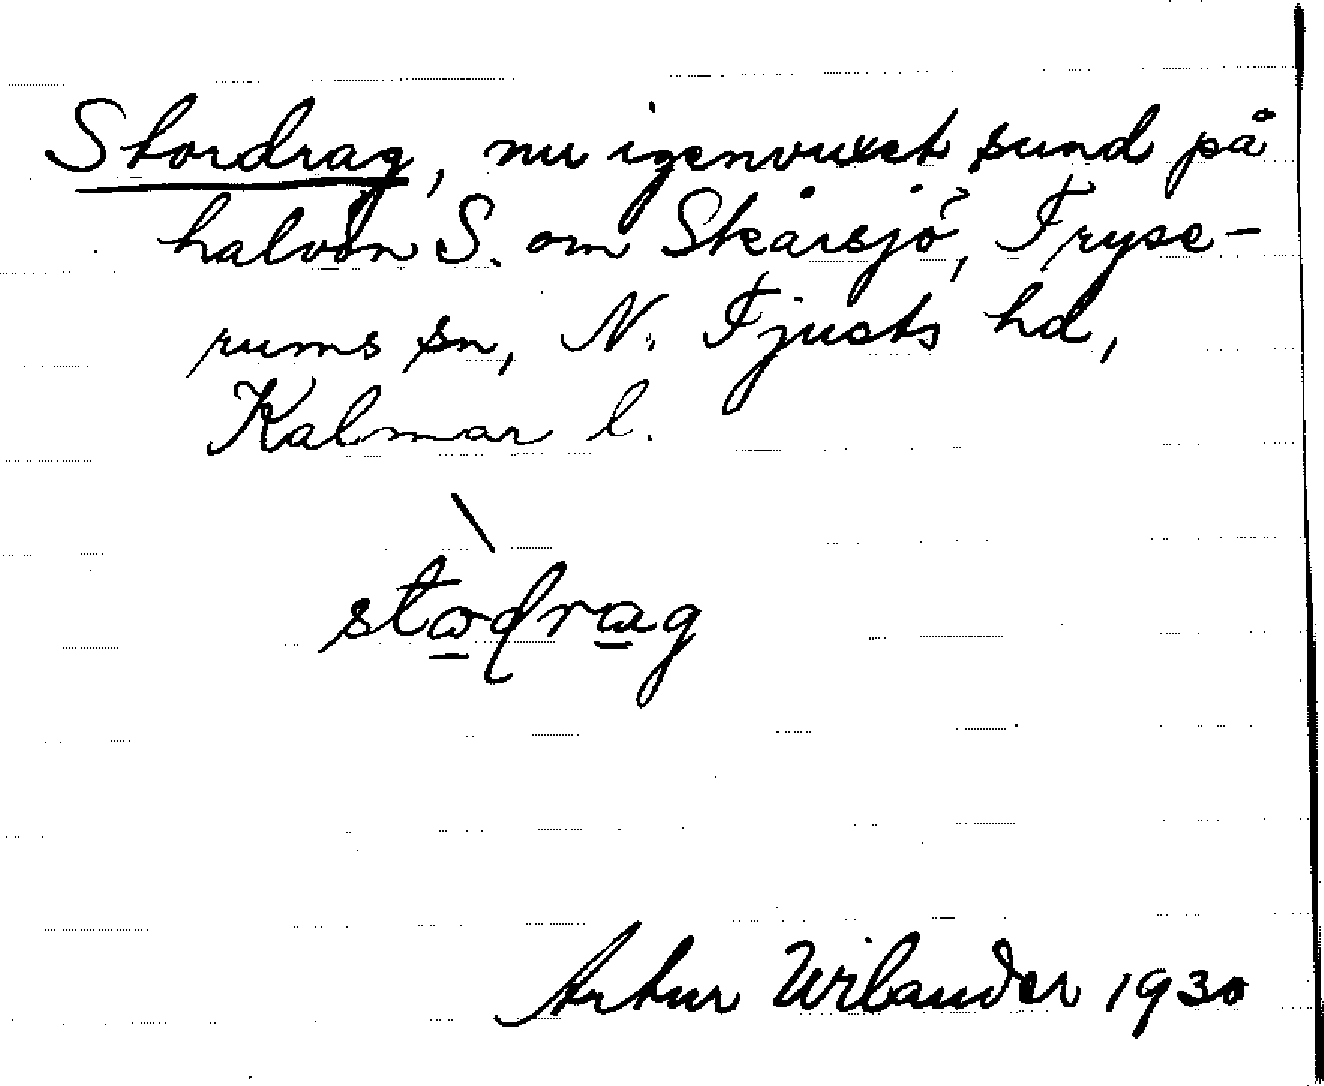 Stordrag, nu igenvuxet sund på
halvön S. om Skårsjö, Tryse-
rums sn, N. Tjusts hd,
Kalmar l.
stodrag
Artur Wilander 1930